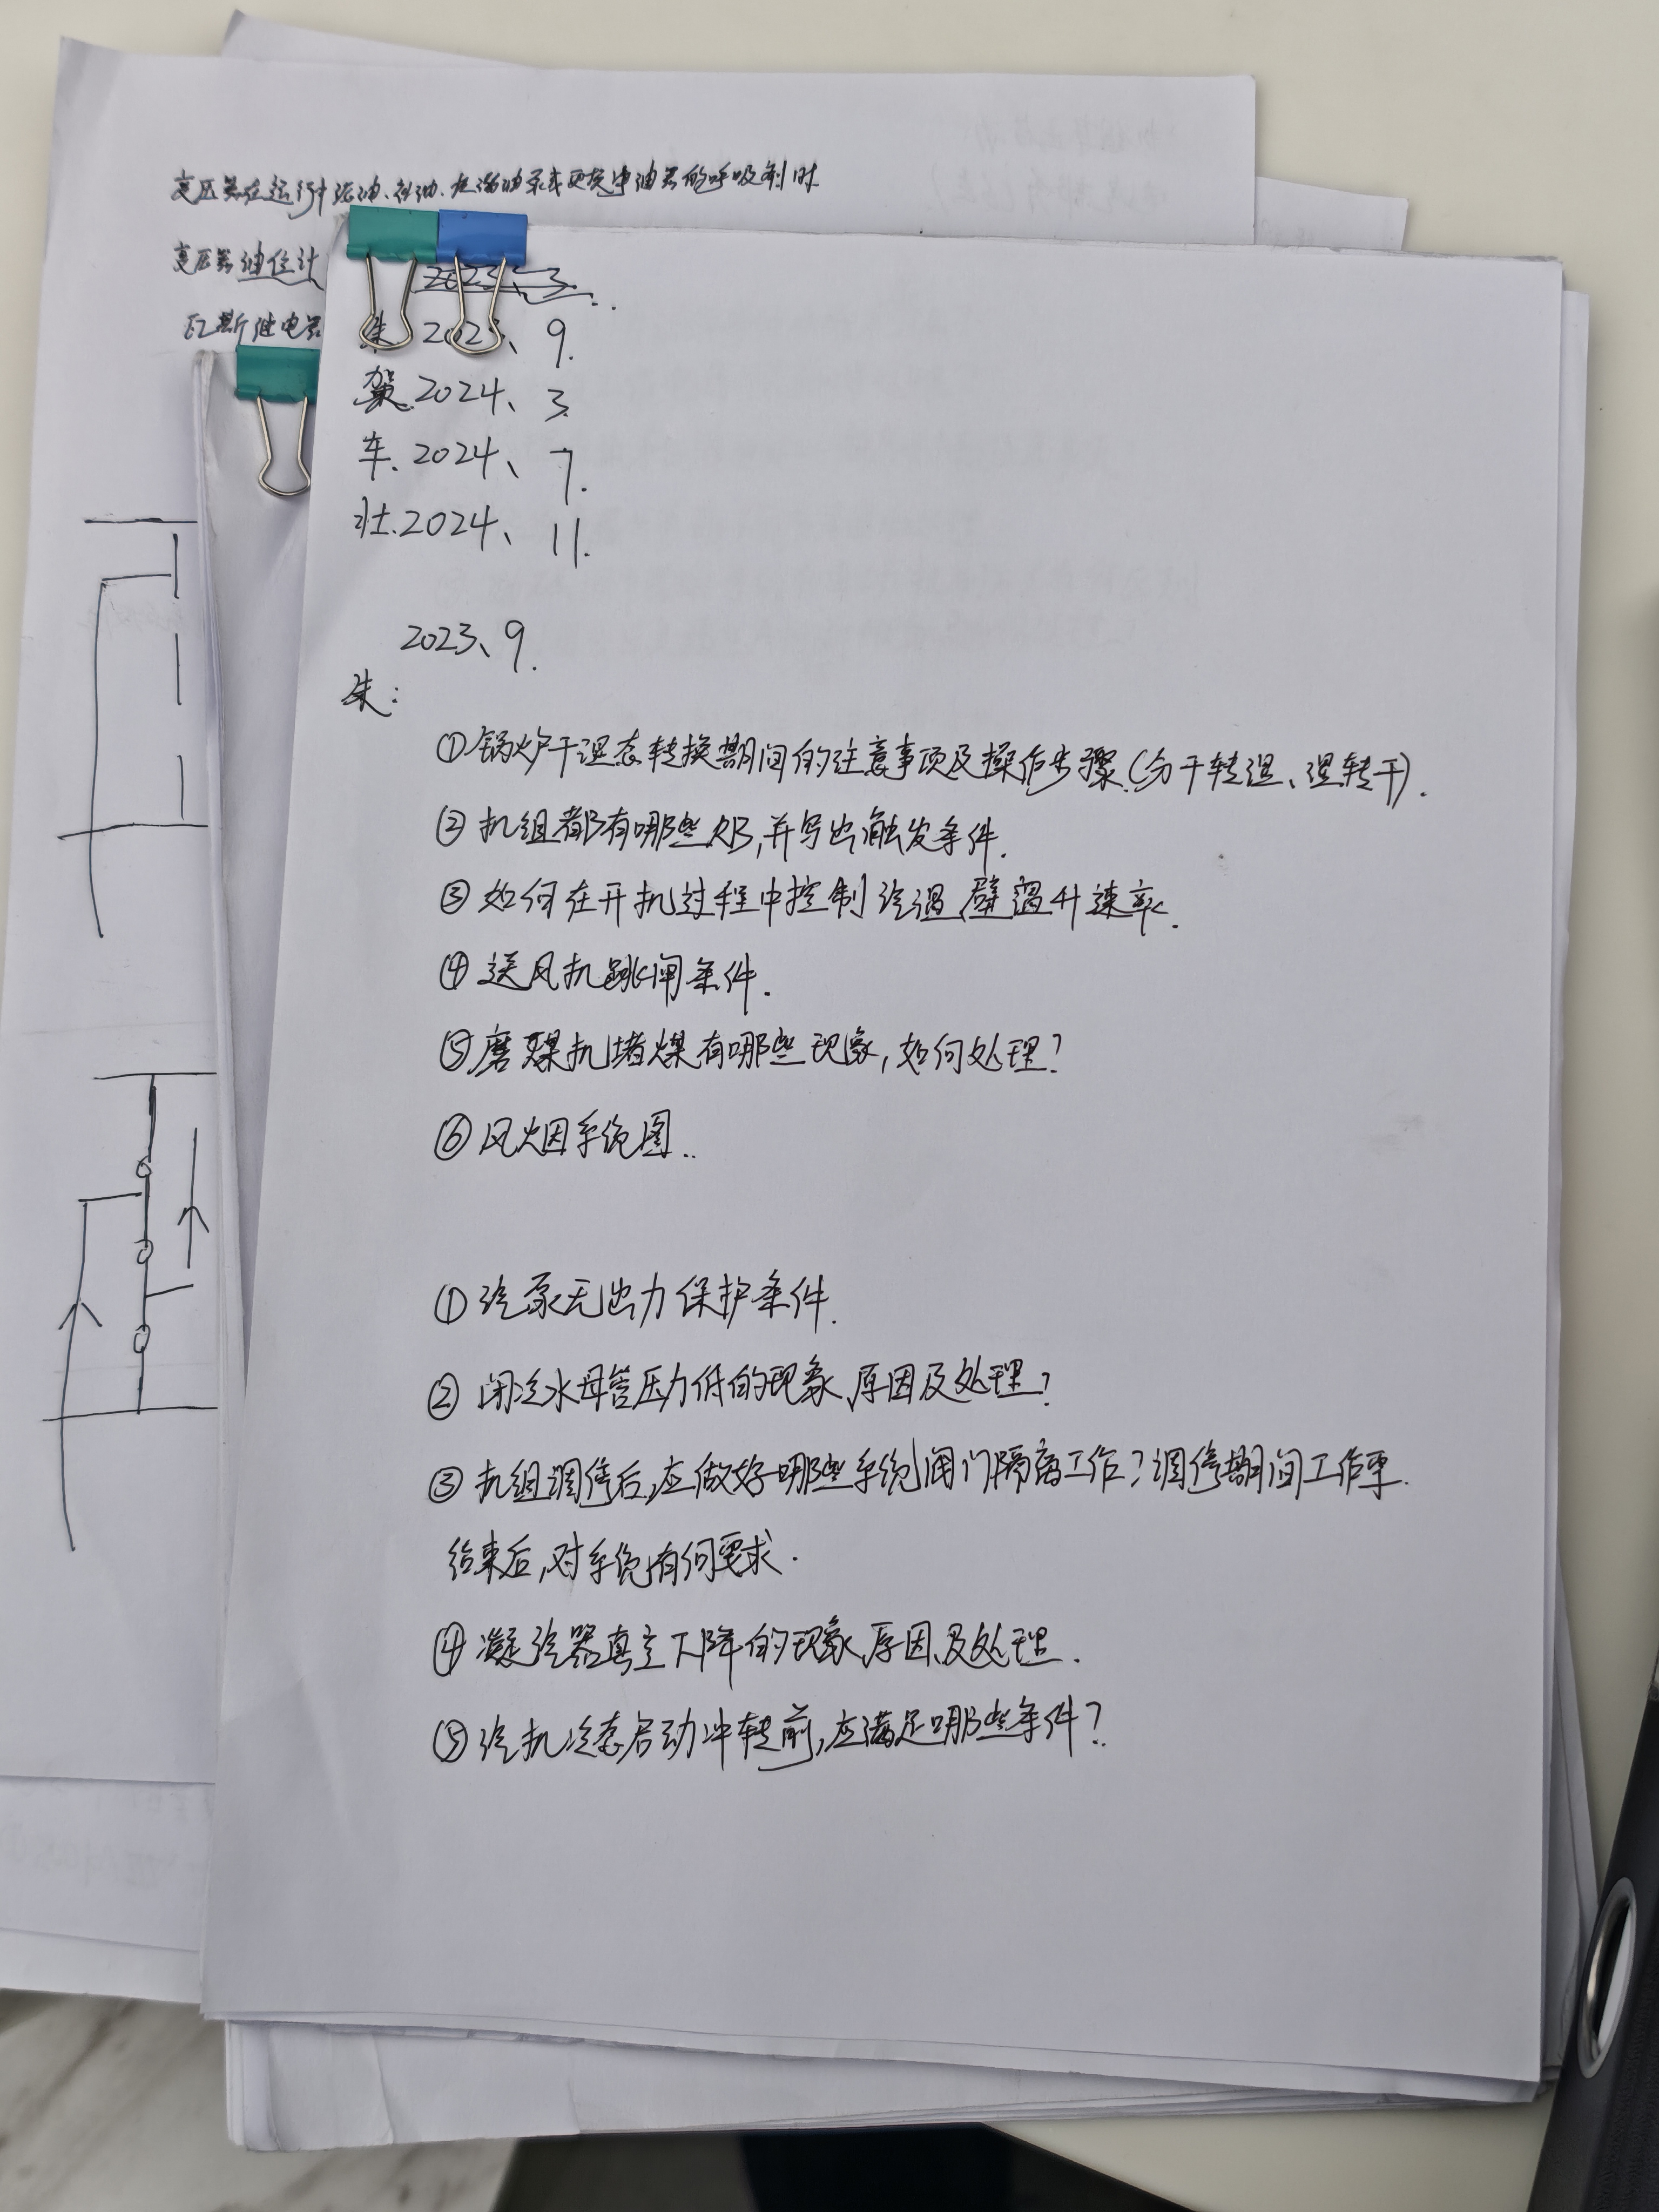 变压器在运行中滤油、补油、换潜油泵或更换净油器的呼吸剂时
变压器油位计
瓦斯继电器
2023、3.
朱 2023、9.
贺.2024、3
车.2024、7.
壮.2024、11.
2023、9.
朱:
①锅炉干湿态转换期间的注意事项及操作步骤.(分干转湿、湿转干).
②机组都有哪些RB,并写出触发条件.
③如何在开机过程中控制汽温壁温升速率.
④送风机跳闸条件.
⑤磨煤机堵煤有哪些现象,如何处理?
⑥风烟系统图..
①汽泵无出力保护条件.
②闭冷水母管压力低的现象、原因及处理?
③机组调停后,应做好哪些系统阀门隔离工作?调停期间工作票.
结束后,对系统有何要求.
④凝汽器真空下降的现象、原因及处理.
⑤汽机冷态启动冲转前,应满足哪些条件?